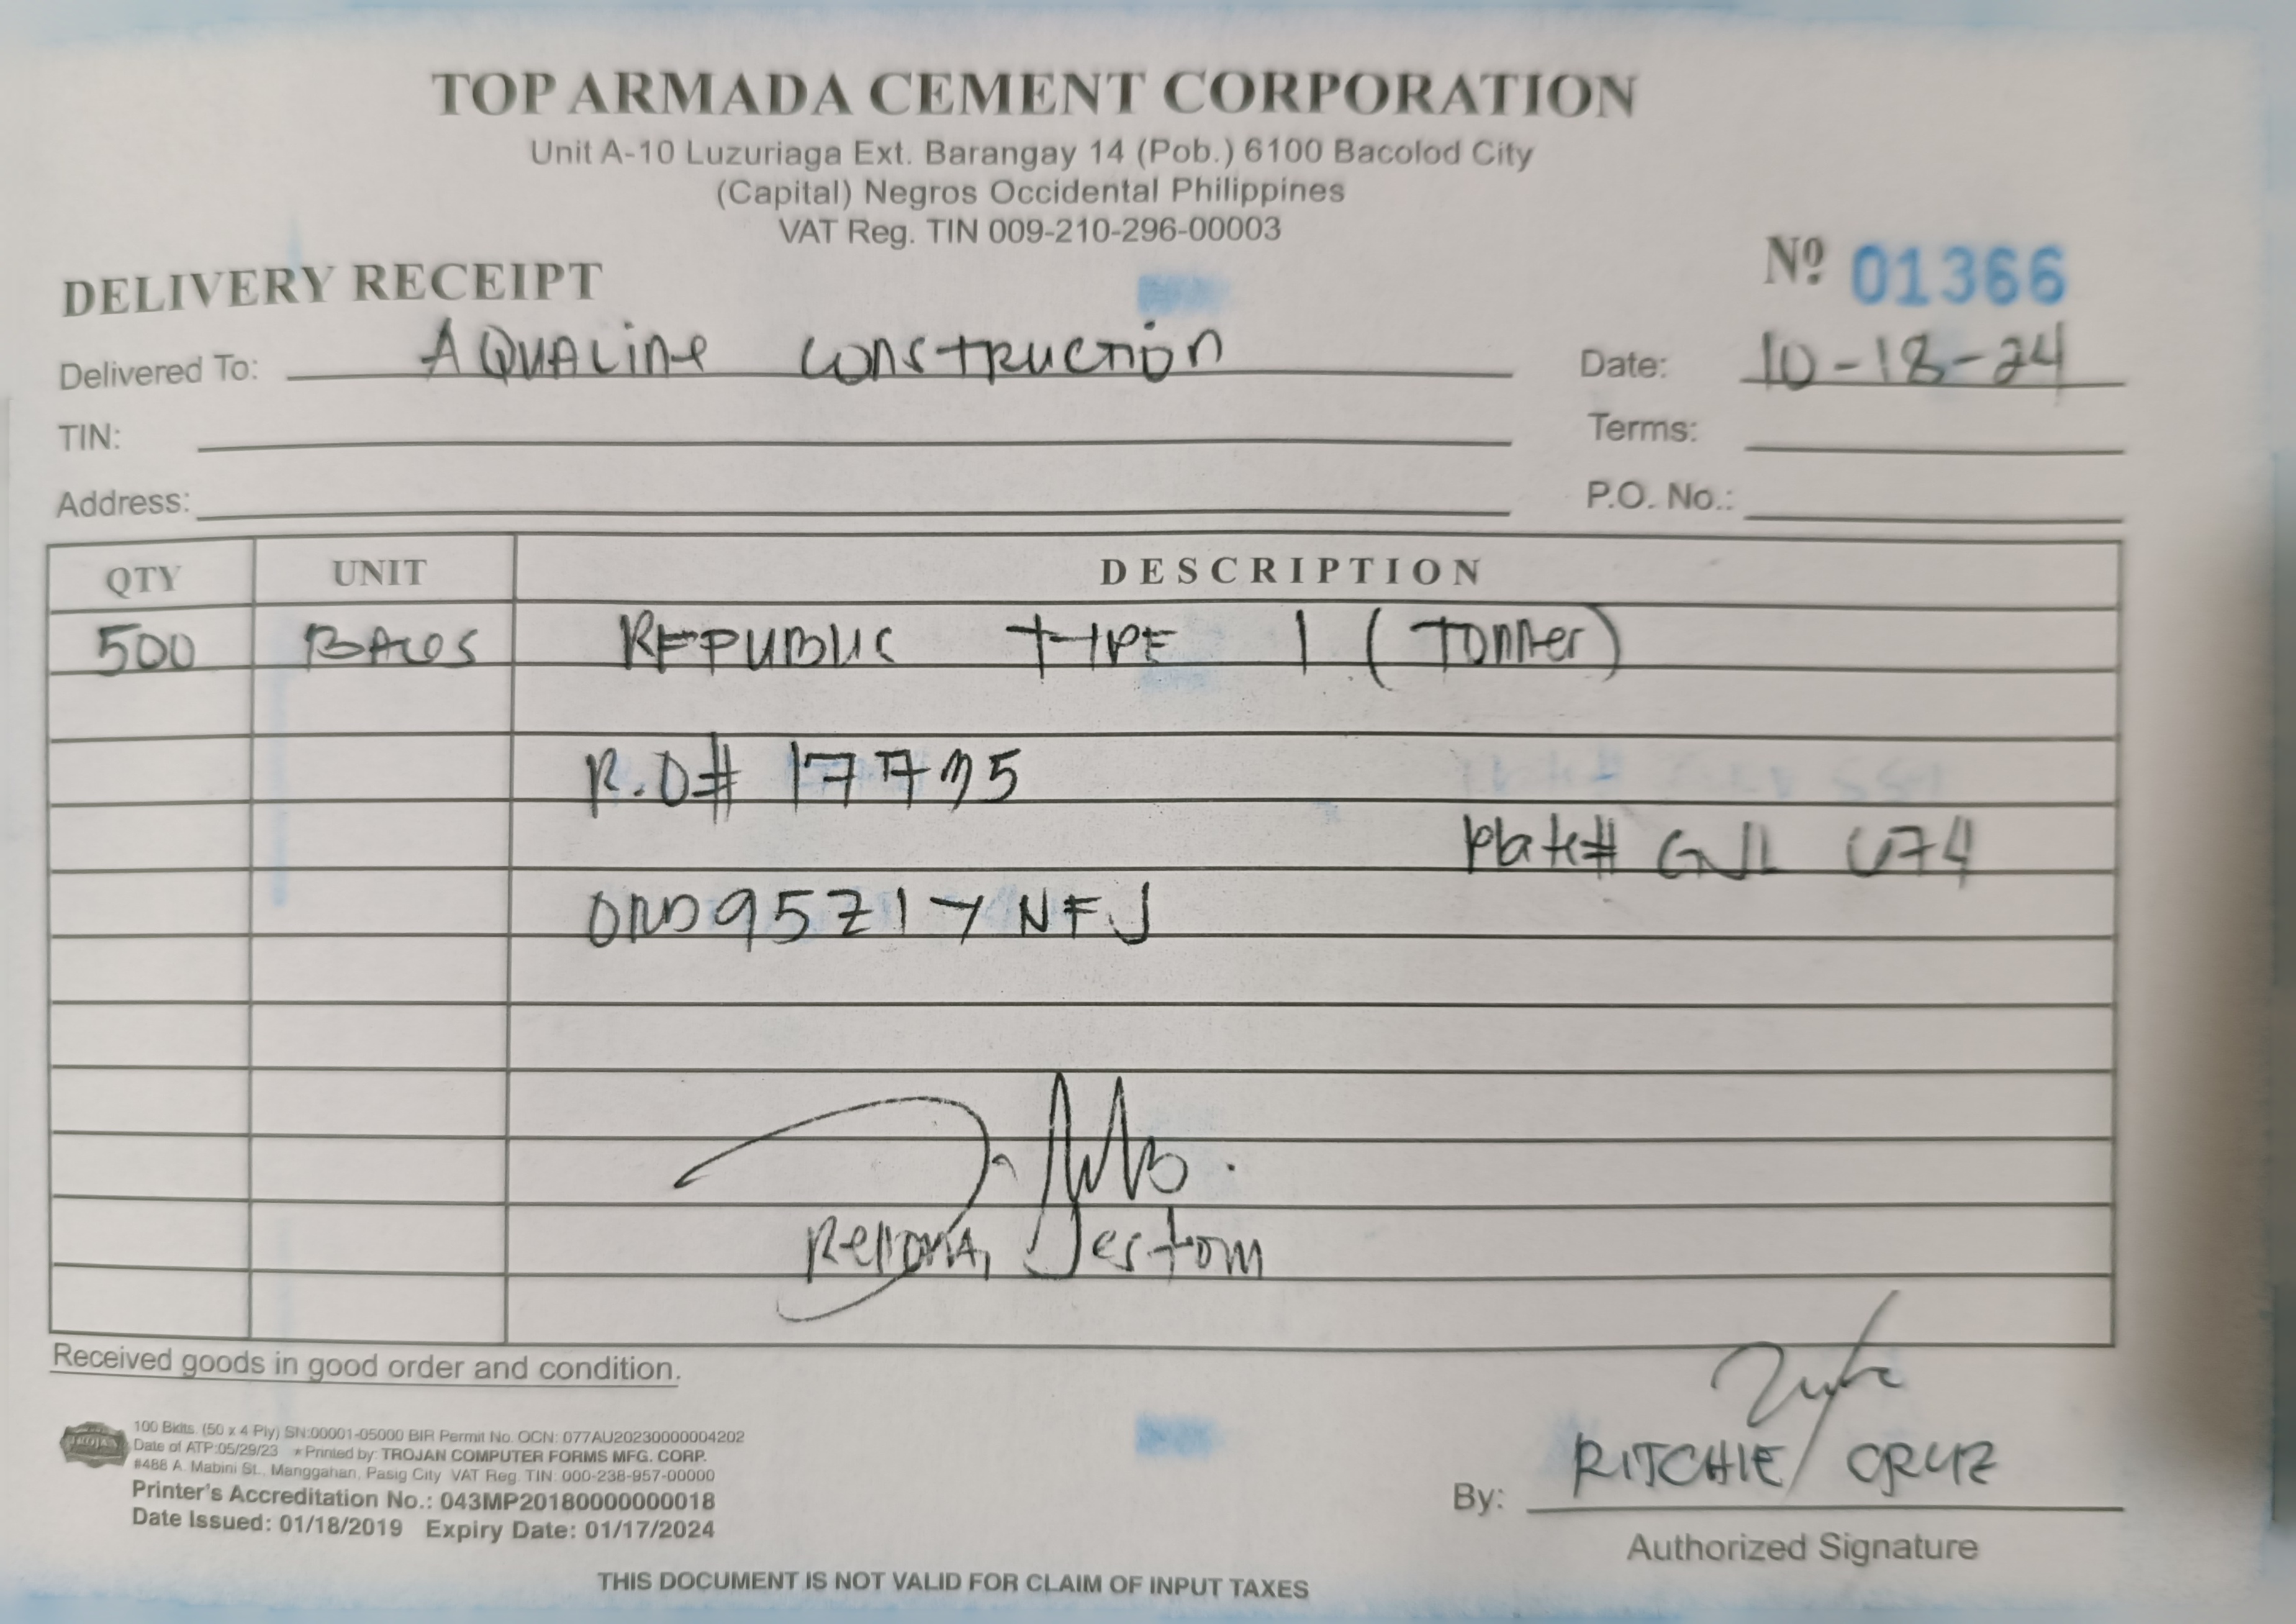 TOP ARMADA CEMENT CORPORATION
Unit A-10 Luzuriaga Ext. Barangay 14 (Pob.) 6100 Bacolod City
(Capital) Negros Occidental Philippines
VAT Reg. TIN 009-210-296-00003
DELIVERY RECEIPT
Nº 01366
Delivered To: AQUALine CONSTRUCTION
Date: 10-18-24
TIN:
Terms:
Address:
P.O. No.:
QTY UNIT DESCRIPTION
500 BAGS REPUBLIC TYPE 1 (Tonner)
R.O# 17735
Plate#
Jestom
Received goods in good order and condition.
100 Bklts. (50 x 4 Ply) SN:00001-05000 BIR Permit No. OCN: 077AU20230000004202
Date of ATP:05/29/23 * Printed by: TROJAN COMPUTER FORMS MFG. CORP.
#488 A. Mabini St., Manggahan, Pasig City VAT Reg. TIN: 000-238-957-00000
Printer's Accreditation No.: 043MP20180000000018
Date Issued: 01/18/2019 Expiry Date: 01/17/2024
By: RITCHIE CRUZ
Authorized Signature
THIS DOCUMENT IS NOT VALID FOR CLAIM OF INPUT TAXES